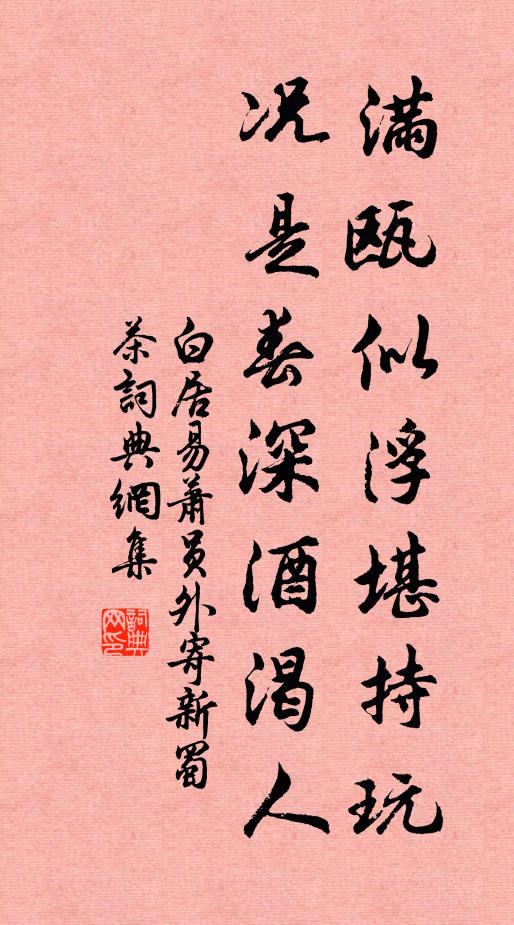 满瓯似浮堪持玩
况是春深酒渴人
白居易萧员外寄新蜀
茶詞典網集
詞典网印